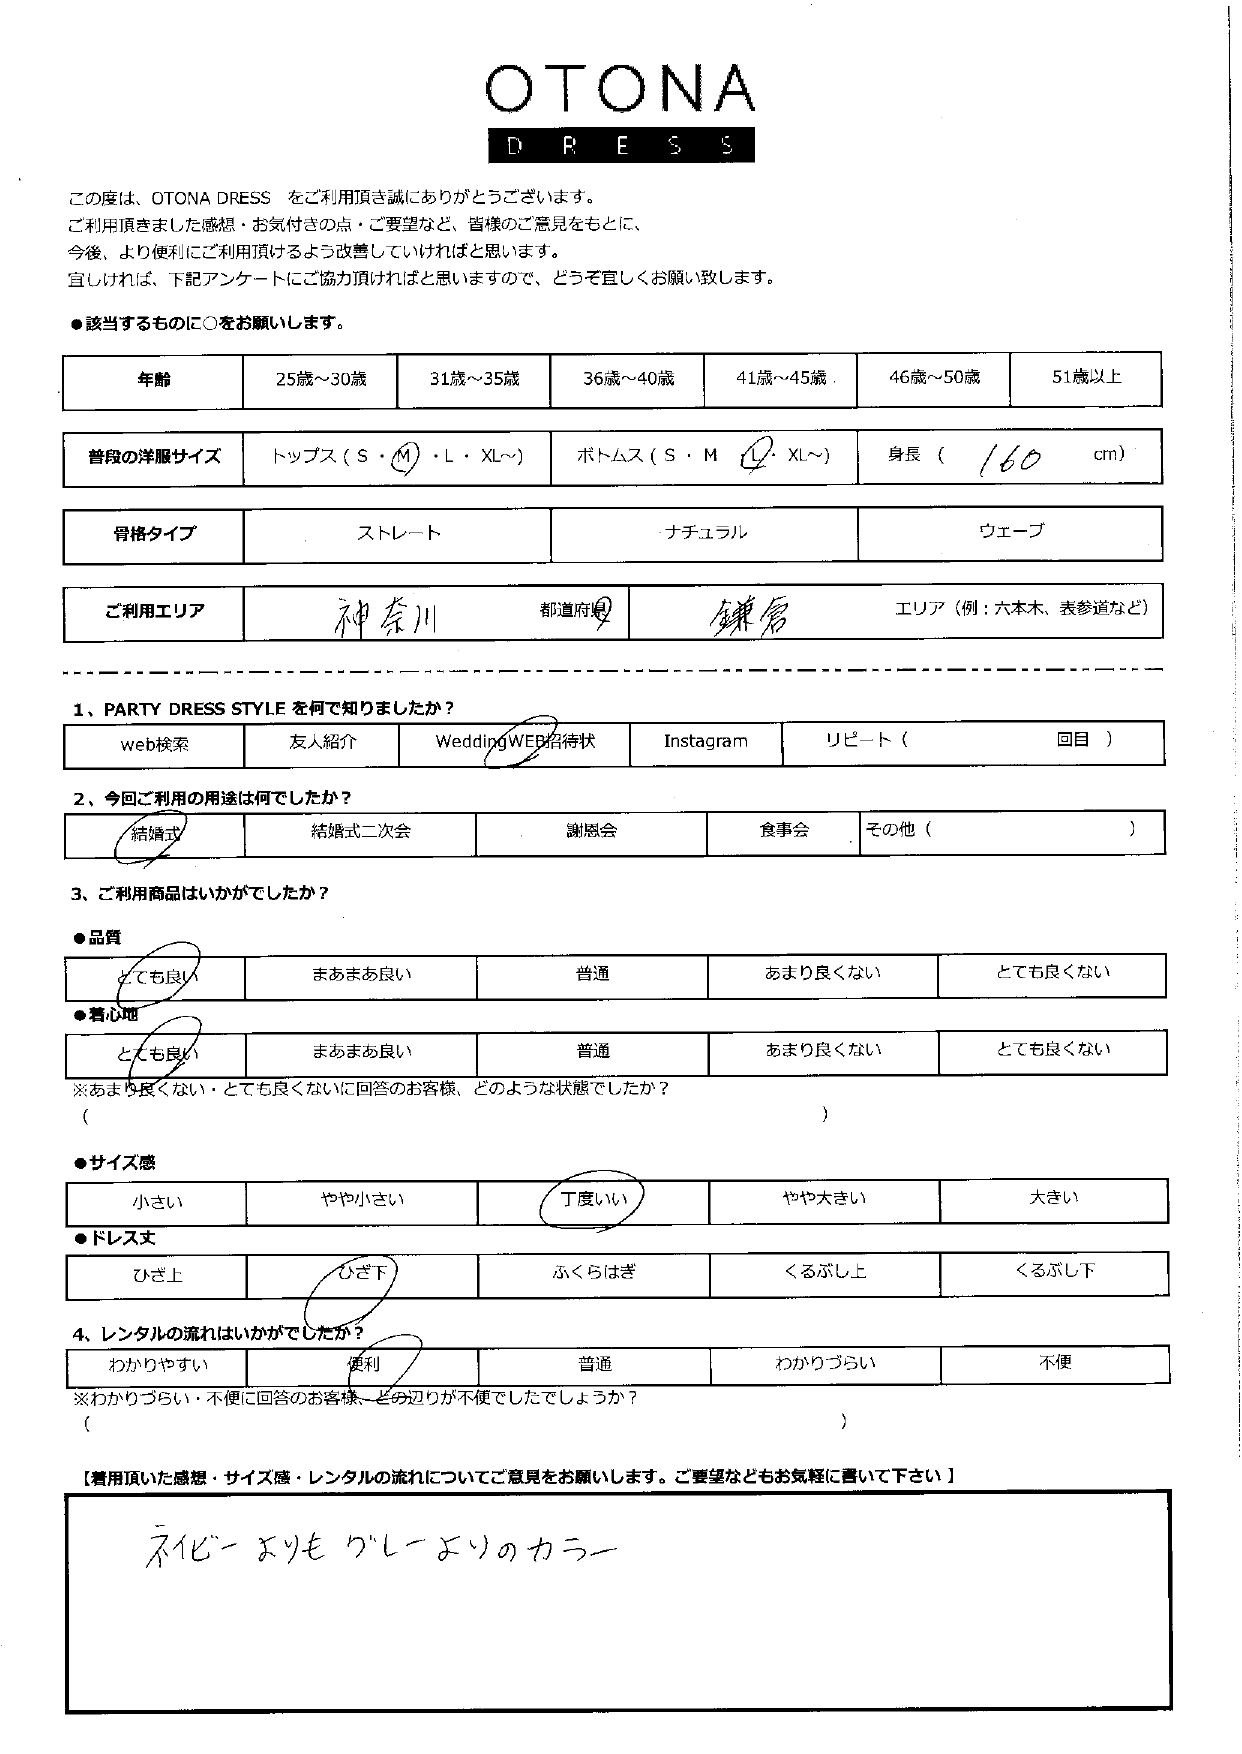 OTONA
DRESS
この度は、OTONA DRESS　をご利用頂き誠にありがとうございます。
ご利用頂きました感想・お気付きの点・ご要望など、皆様のご意見をもとに、
今後、より便利にご利用頂けるよう改善していければと思います。
宜しければ、下記アンケートにご協力頂ければと思いますので、どうぞ宜しくお願い致します。
●該当するものに○をお願いします。
年齢 25歳～30歳 31歳～35歳 36歳～40歳 41歳～45歳 46歳～50歳 51歳以上
普段の洋服サイズ トップス ( S ・ M ・ L ・ XL～) ボトムス ( S ・ M L ・ XL～) 身長 ( 160 cm)
骨格タイプ ストレート ナチュラル ウェーブ
ご利用エリア 神奈川 都道府県 鎌倉 エリア（例：六本木、表参道など）
1、PARTY DRESS STYLE を何で知りましたか？
web検索 友人紹介 WeddingWEB招待状 Instagram リピート ( 回目 )
2、今回ご利用の用途は何でしたか？
結婚式 結婚式二次会 謝恩会 食事会 その他 ( )
3、ご利用商品はいかがでしたか？
●品質
とても良い まあまあ良い 普通 あまり良くない とても良くない
●着心地
とても良い まあまあ良い 普通 あまり良くない とても良くない
※あまり良くない・とても良くないに回答のお客様、どのような状態でしたか？
( )
●サイズ感
小さい やや小さい 丁度いい やや大きい 大きい
●ドレス丈
ひざ上 ひざ下 ふくらはぎ くるぶし上 くるぶし下
4、レンタルの流れはいかがでしたか？
わかりやすい 便利 普通 わかりづらい 不便
※わかりづらい・不便に回答のお客様、どの辺りが不便でしたでしょうか？
( )
【着用頂いた感想・サイズ感・レンタルの流れについてご意見をお願いします。ご要望などもお気軽に書いて下さい 】
ネイビーよりも グレーよりのカラー